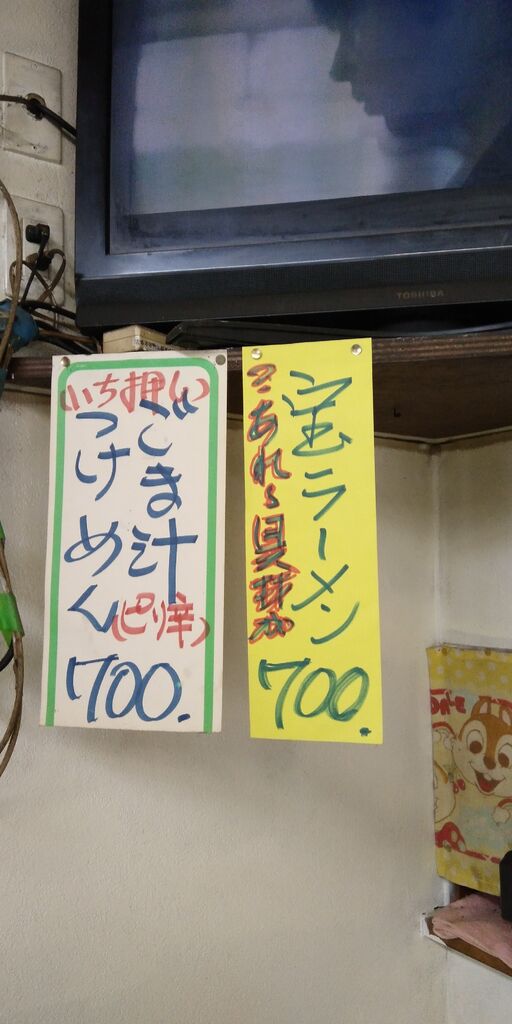 TOSHIBA
いち押し
ごま汁
つけめん
(ピリ辛)
700.
宝ラーメン
700.